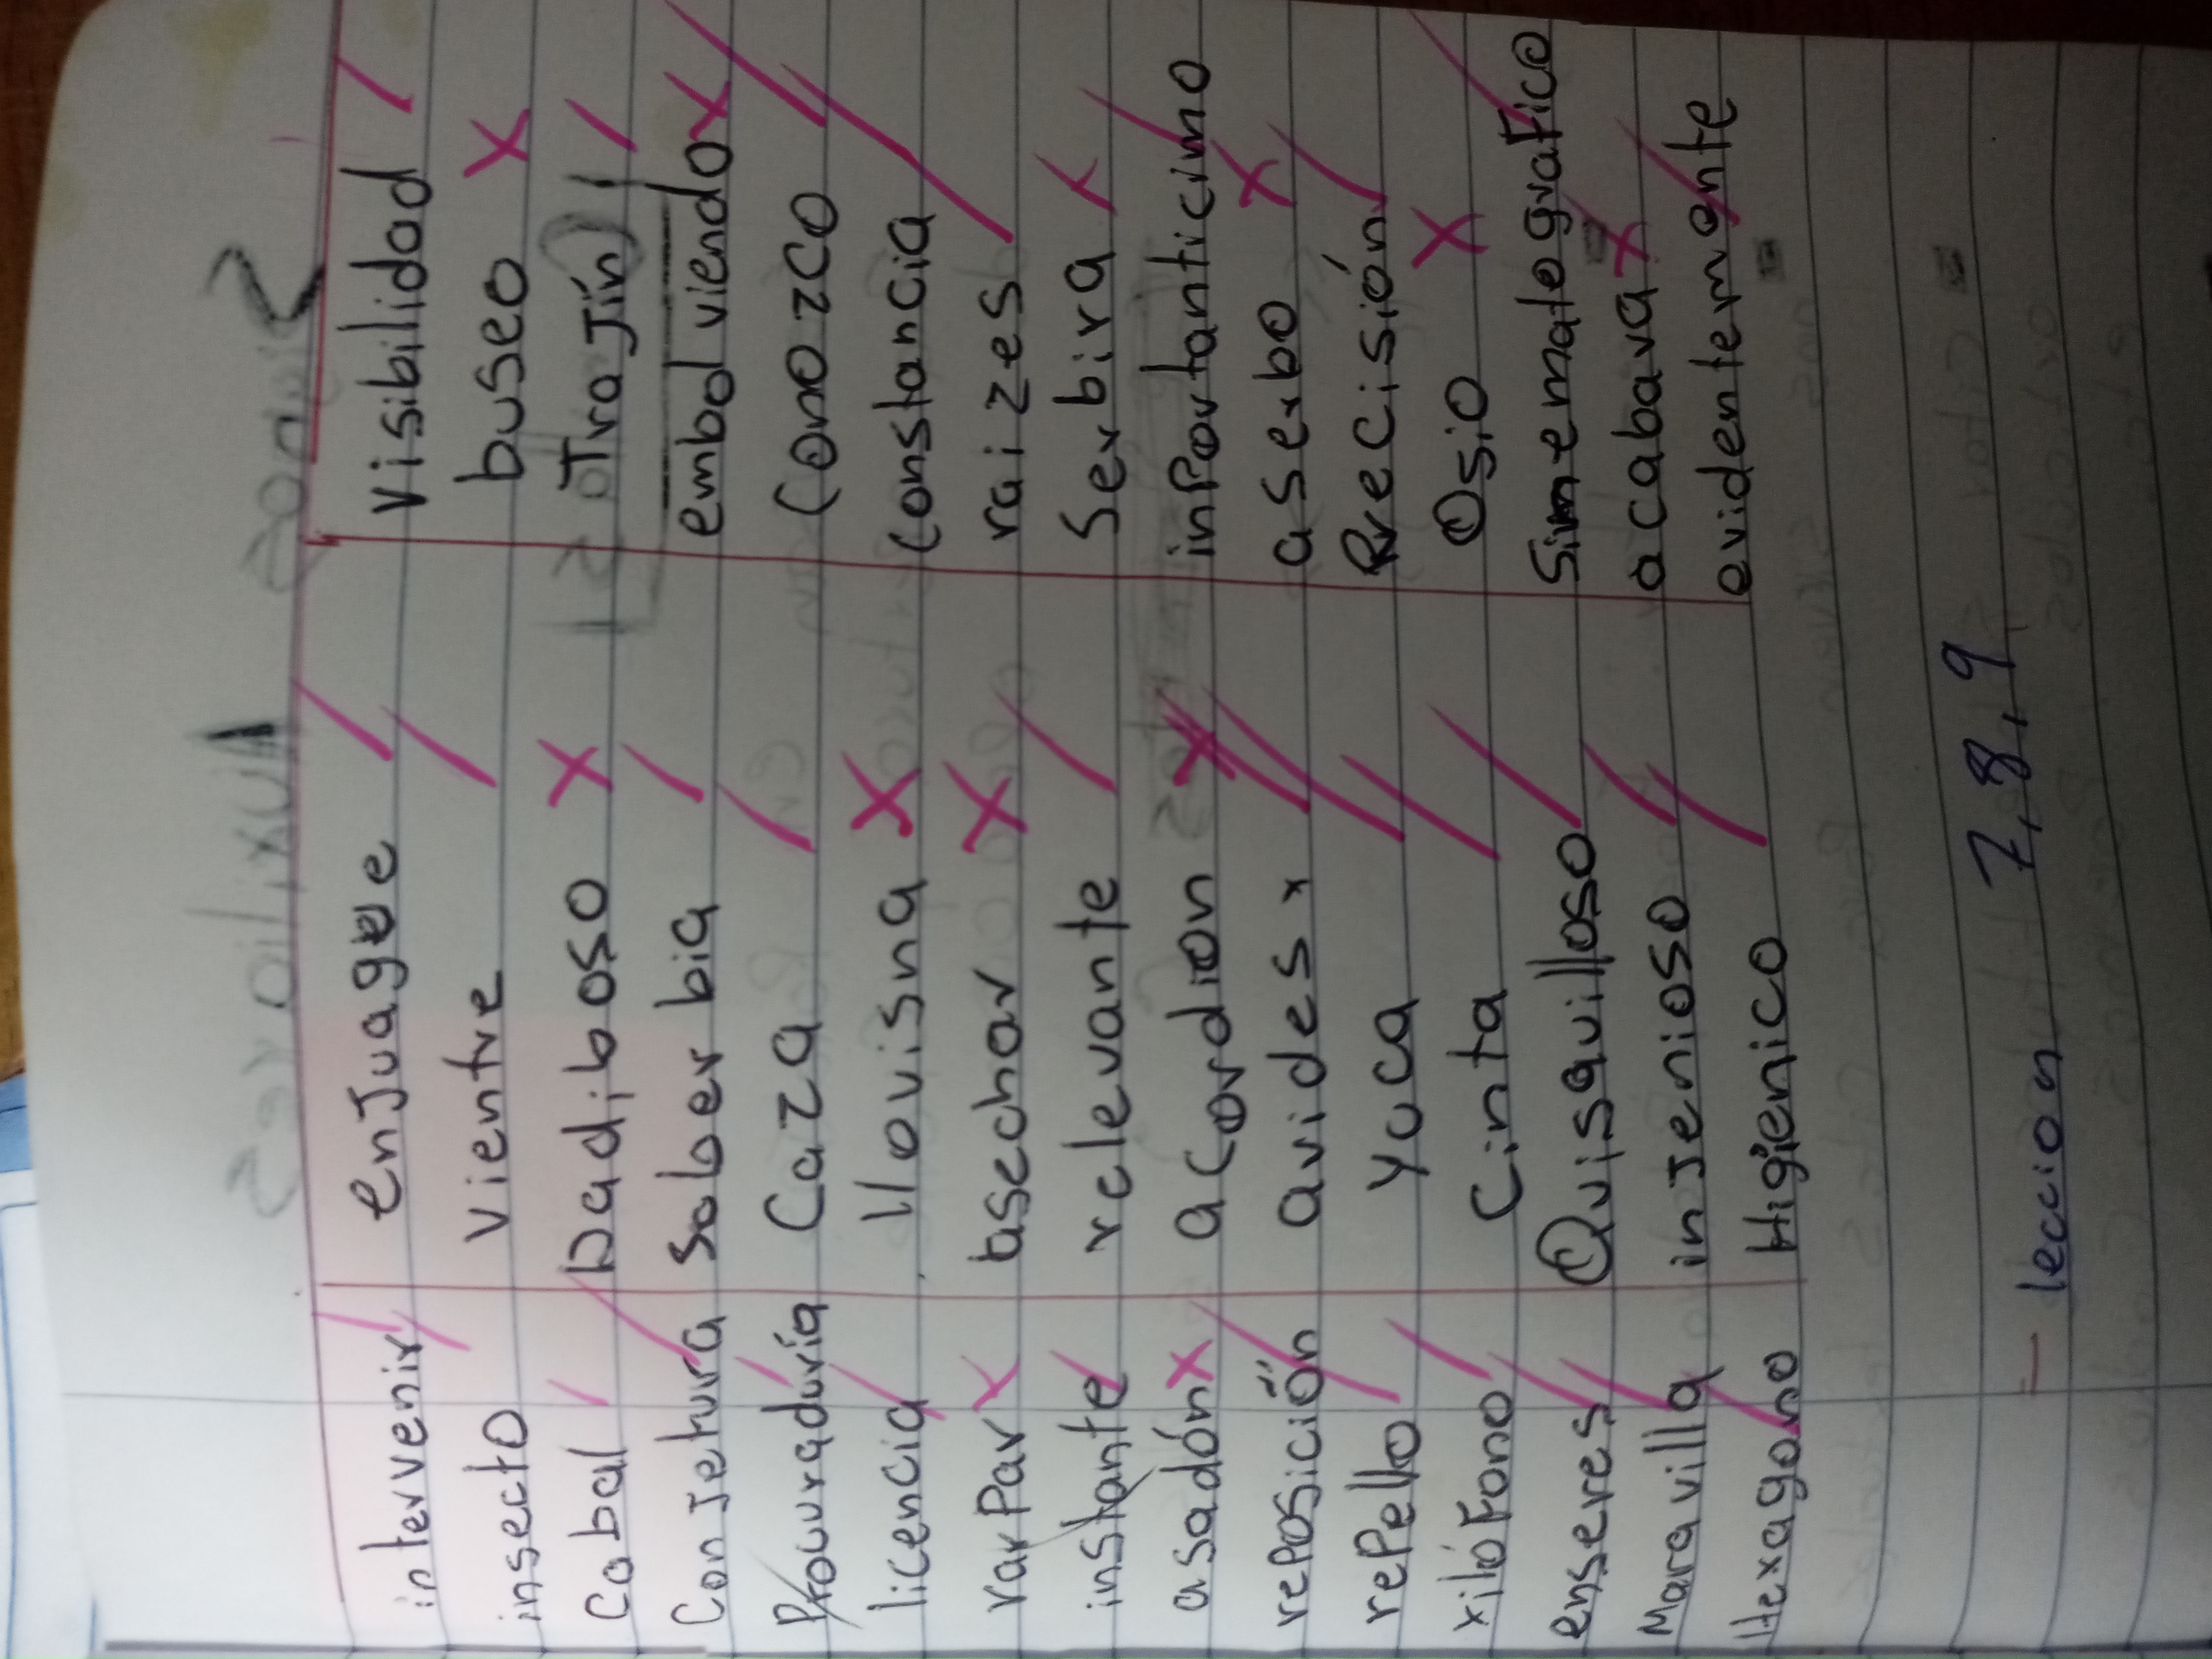 intervenir enjuague Visibilidad
insecto vientre buseo
Cabal Dadiboso Trajín
Conjetura Soberbia embolviendo
Procuraduría Caza Conozco
licencia llovisna constancia
varPar asechar raizes
instante relevante Serbira
asadón acordion inPortanticimo
rePosición avides aserbo
rePello Yuca Precisión
xilóFono Cinta Osio
enseres Quisquilloso SinematograFico
Maravilla inJenioso acabava
Hexagono Higienico evidentemente
- leccion 7,8,9